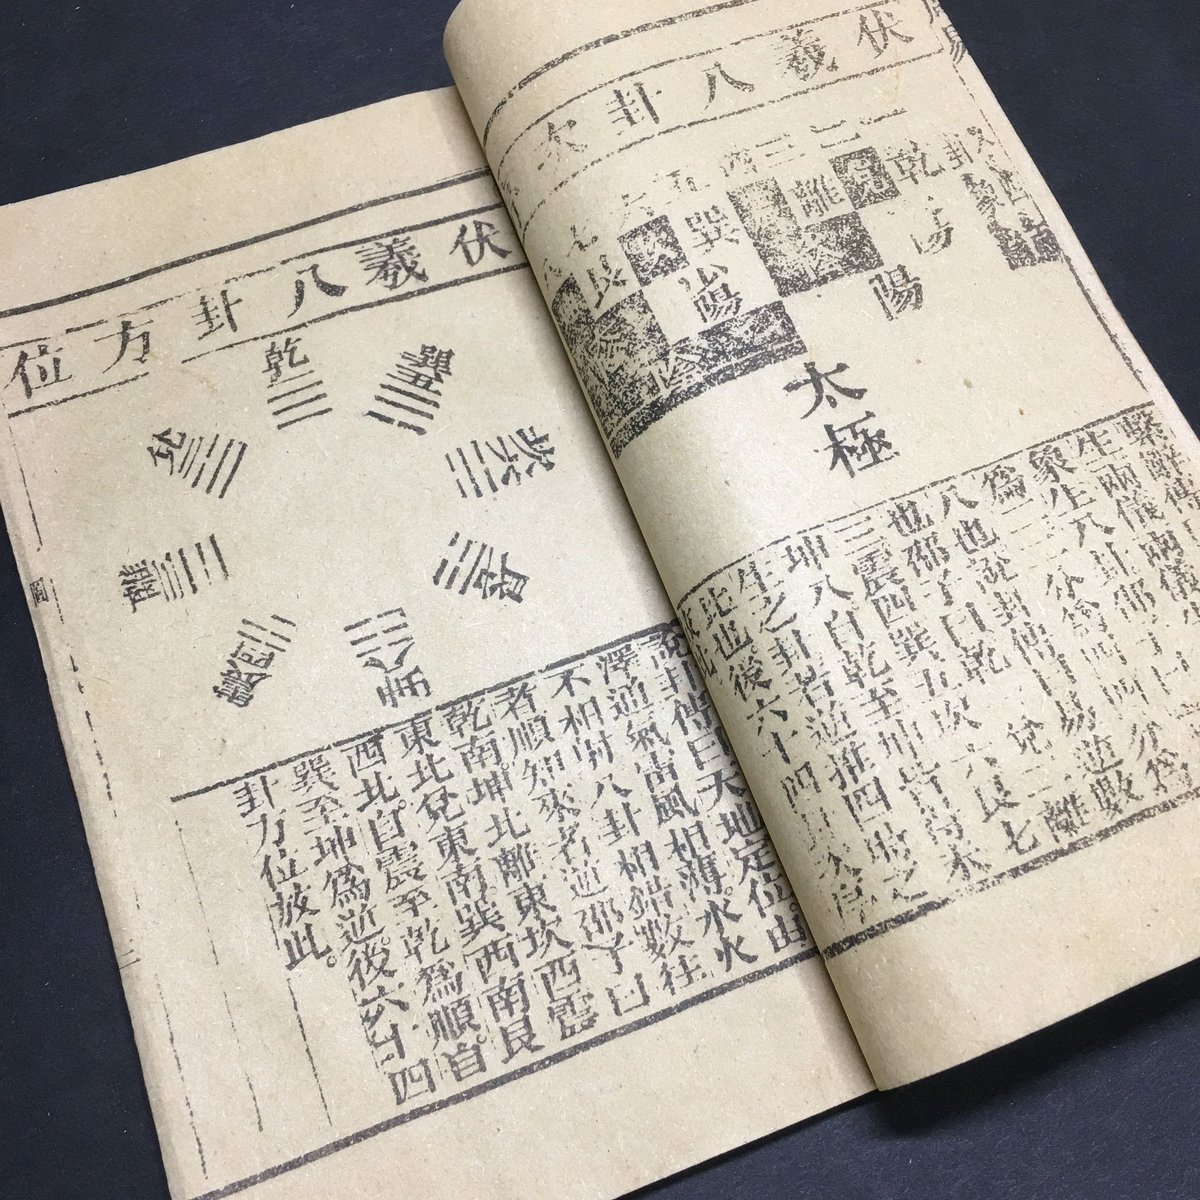 伏羲八卦次
一
二
三
四
五
六
七
乾
兌
離
巽
艮
陽
少陽
陰
太極
繫辭傳
生兩儀兩儀
象生八卦邵子曰
爲二二分爲四四分爲
八也說卦傳曰易逆數
也邵子曰乾一兌二離
三震四巽五坎六艮七
坤八自乾至坤皆得未
生之卦若逆推四時之
比也。後六十四卦次序
放此
伏羲八卦方位
乾一
兌二
離三
震四
巽五
坎六
艮七
坤八
說卦傳曰天地定位。山
澤通氣雷風相薄。水火
不相射八卦相錯數往
者順知來者逆邵子曰
乾南坤北離東坎西震
東北兌東南。巽西南艮
西北。自震至乾爲順。自
巽至坤爲逆。後六十四
卦方位放此。
圖
三